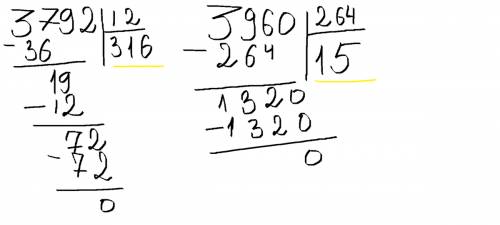 3792 | 12
-36 | 316
19
-12
72
-72
0
3960 | 264
-264 | 15
1320
-1320
0